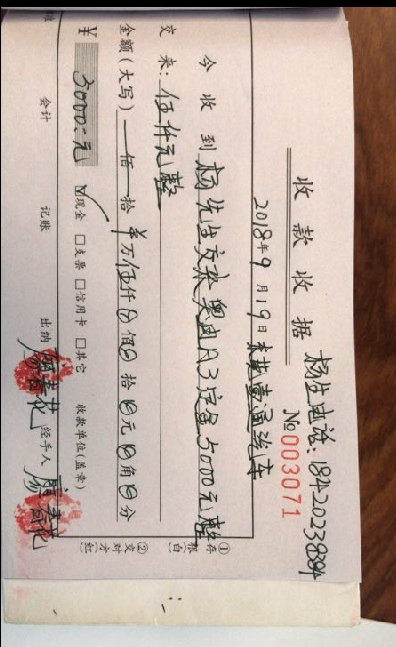 杨生电话：18420238384
收款收据 №003071
2018年9月19日
今收到杨先生交来奥迪A3定金5000元整
交来：伍仟元整
金额（大写） 佰 拾 万伍仟 佰 拾 元 角 分
¥ 5000.元 ☑现金 □支票 □信用卡 □其它 收款单位（盖章）
会计 记账 出纳 经手人
①存根（白） ②交对方（红）